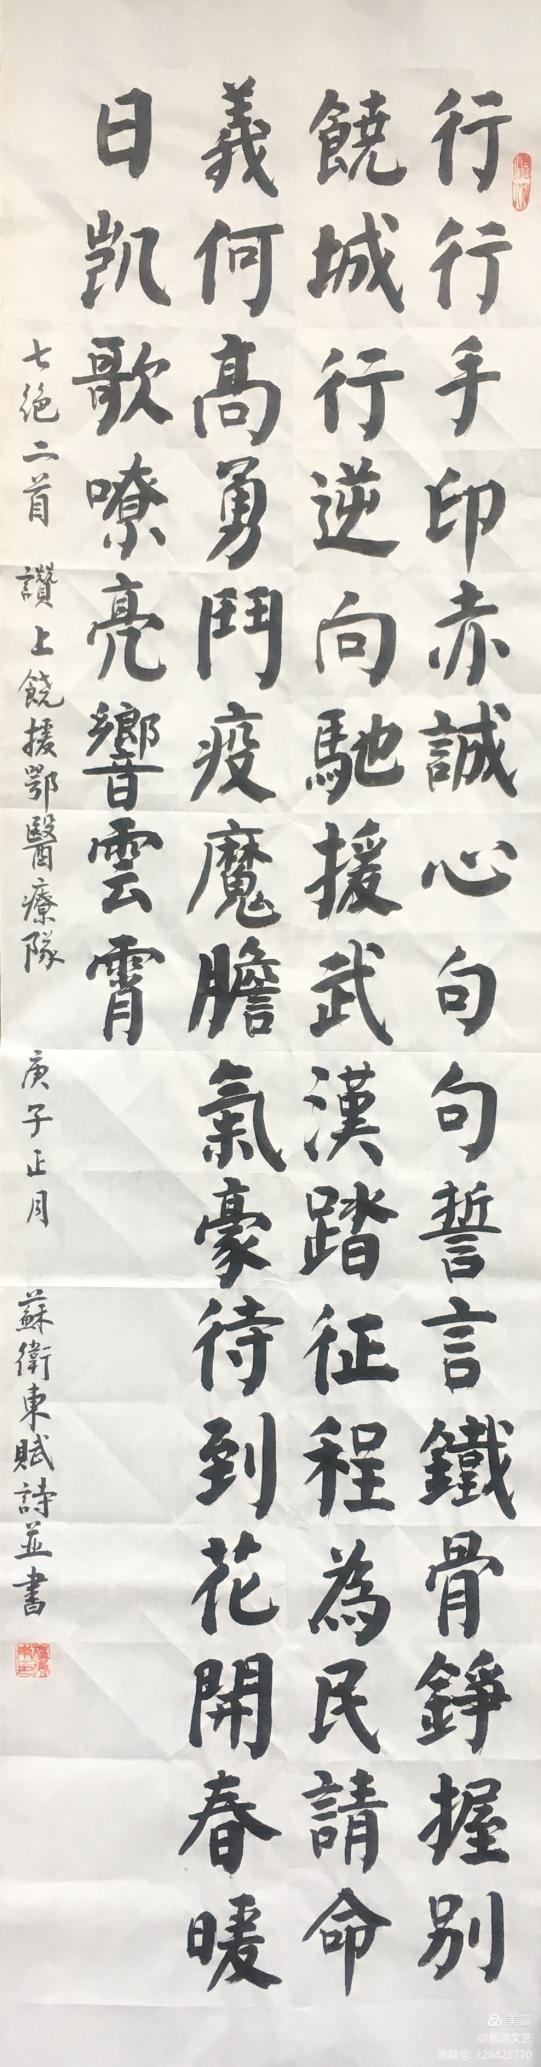 行行手印赤誠心句句誓言鐵骨錚握別
饒城行逆向馳援武漢踏征程為民請命
義何高勇鬥疫魔膽氣豪待到花開春暖
日凱歌嘹亮響雲霄
七絕二首 讚上饒援鄂醫療隊 庚子正月 蘇衛東賦詩並書
美篇
@鹅湖文艺
美篇号: 328425770